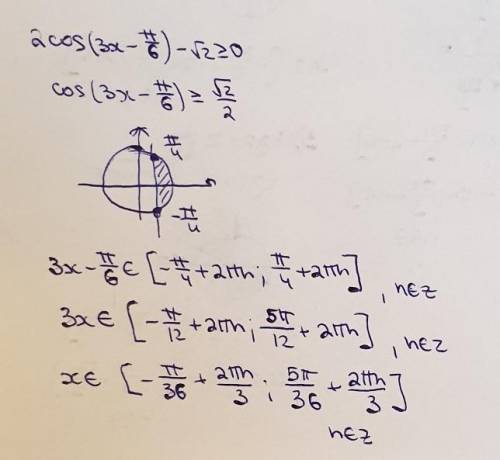 2cos(3x - π/6) - √2 ≥ 0
cos(3x - π/6) ≥ √2/2
π/4
-π/4
3x - π/6 ∈ [-π/4 + 2πn; π/4 + 2πn], n∈z
3x ∈ [-π/12 + 2πn; 5π/12 + 2πn], n∈z
x∈ [-π/36 + 2πn/3; 5π/36 + 2πn/3]
n∈z